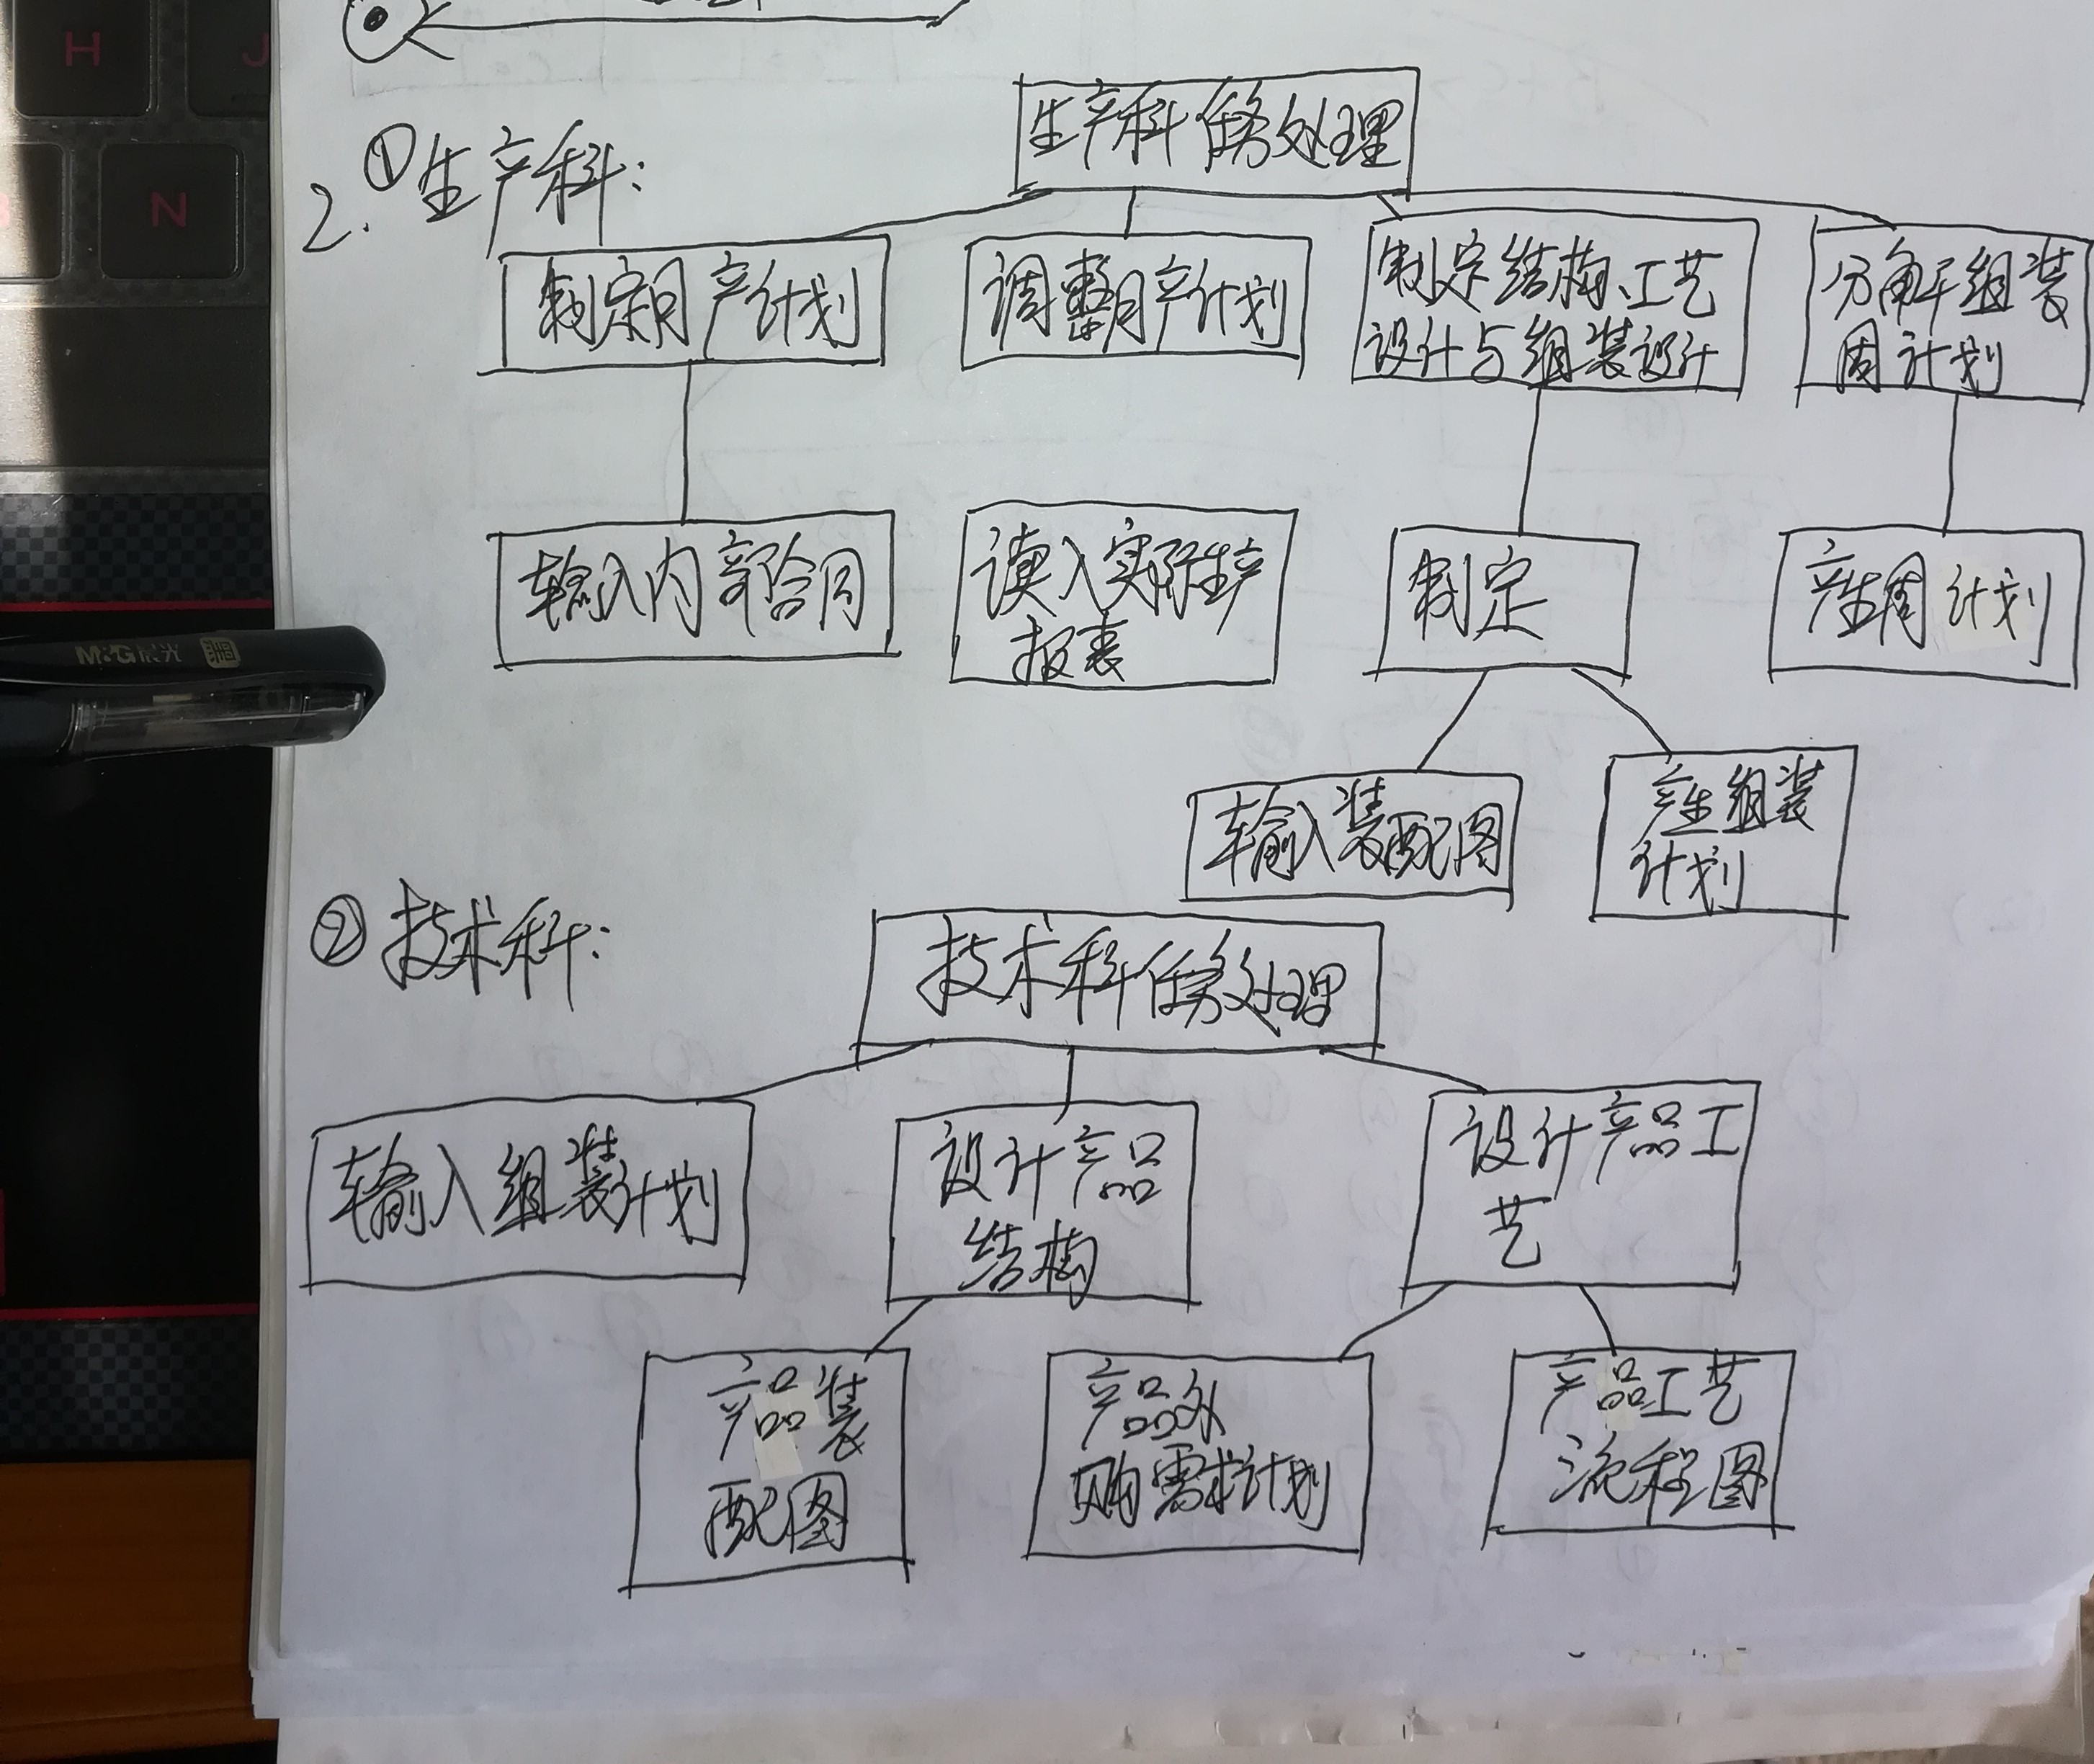 H
J
N
M&G晨光
2.①生产科:
生产科任务处理
制定月产计划
调整月产计划
制定结构、工艺
设计与组装设计
分解组装
周计划
输入内部合同
读入实际生产
报表
制定
产生周计划
输入装配图
产生组装
计划
②技术科:
技术科任务处理
输入组装计划
设计产品
结构
设计产品工
艺
产品装
配图
产品外
购需求计划
产品工艺
流程图